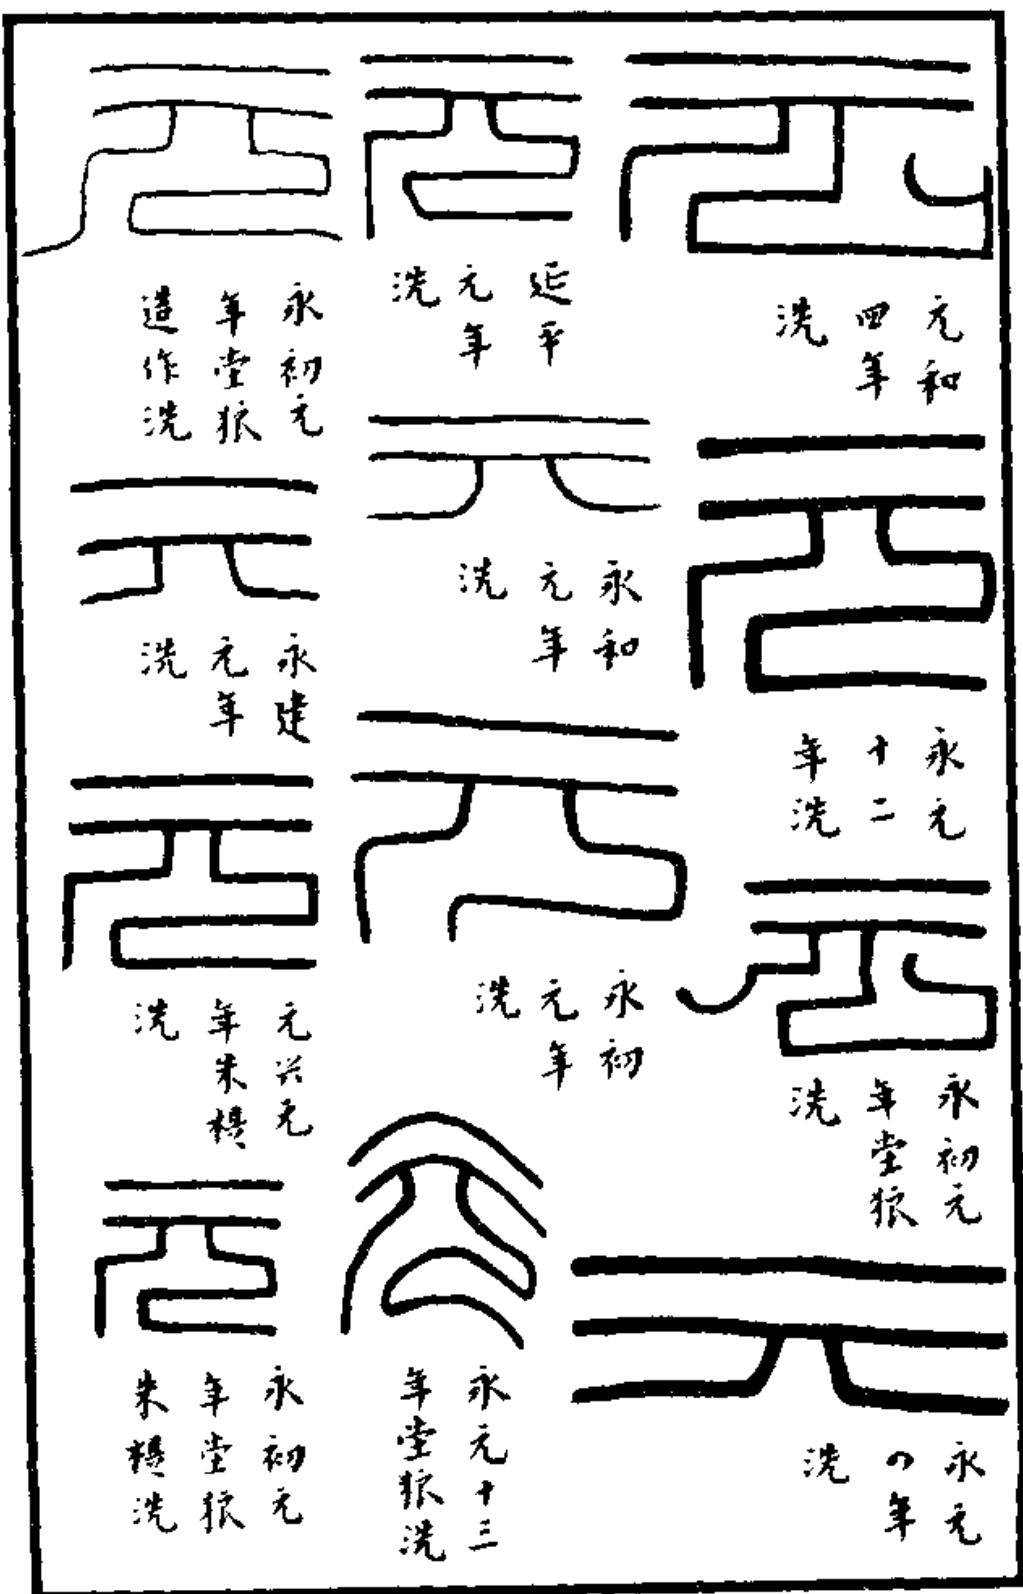 元
元和
四年
洗
元
永元
十二
年洗
元
永初元
年堂狼
洗
元
永元
四年
洗
元
延平
元年
洗
元
永和
元年
洗
元
永初
元年
洗
元
永元十三
年堂狼洗
元
永初元
年堂狼
造作洗
元
永建
元年
洗
元
元兴元
年朱提
洗
元
永初元
年堂狼
朱提洗